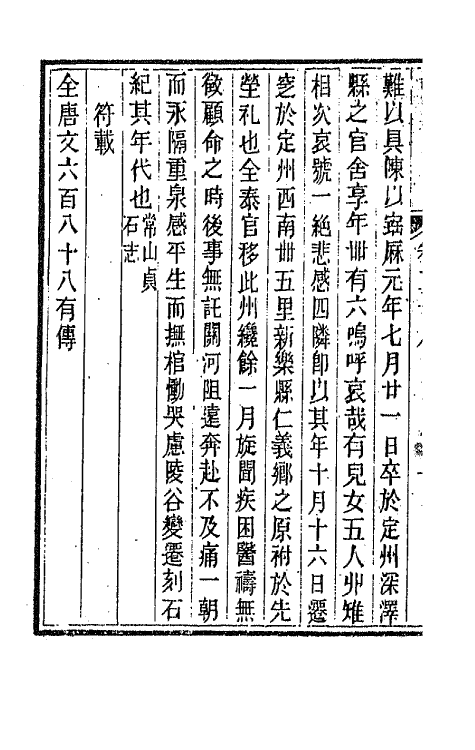 難以具陳以寶厤元年七月廿一日卒於定州深澤
縣之官舍享年卌有六嗚呼哀哉有兒女五人丱雉
相次哀號一絕悲感四隣卽以其年十月十六日遷
窆於定州西南卌五里新樂縣仁義鄉之原祔於先
塋礼也全泰官移此州纔餘一月旋聞疾困醫禱無
徵顧命之時後事無託關河阻遠奔赴不及痛一朝
而永隔重泉感平生而撫棺慟哭慮陵谷變遷刻石
紀其年代也常山貞石志
符載
全唐文六百八十八有傳